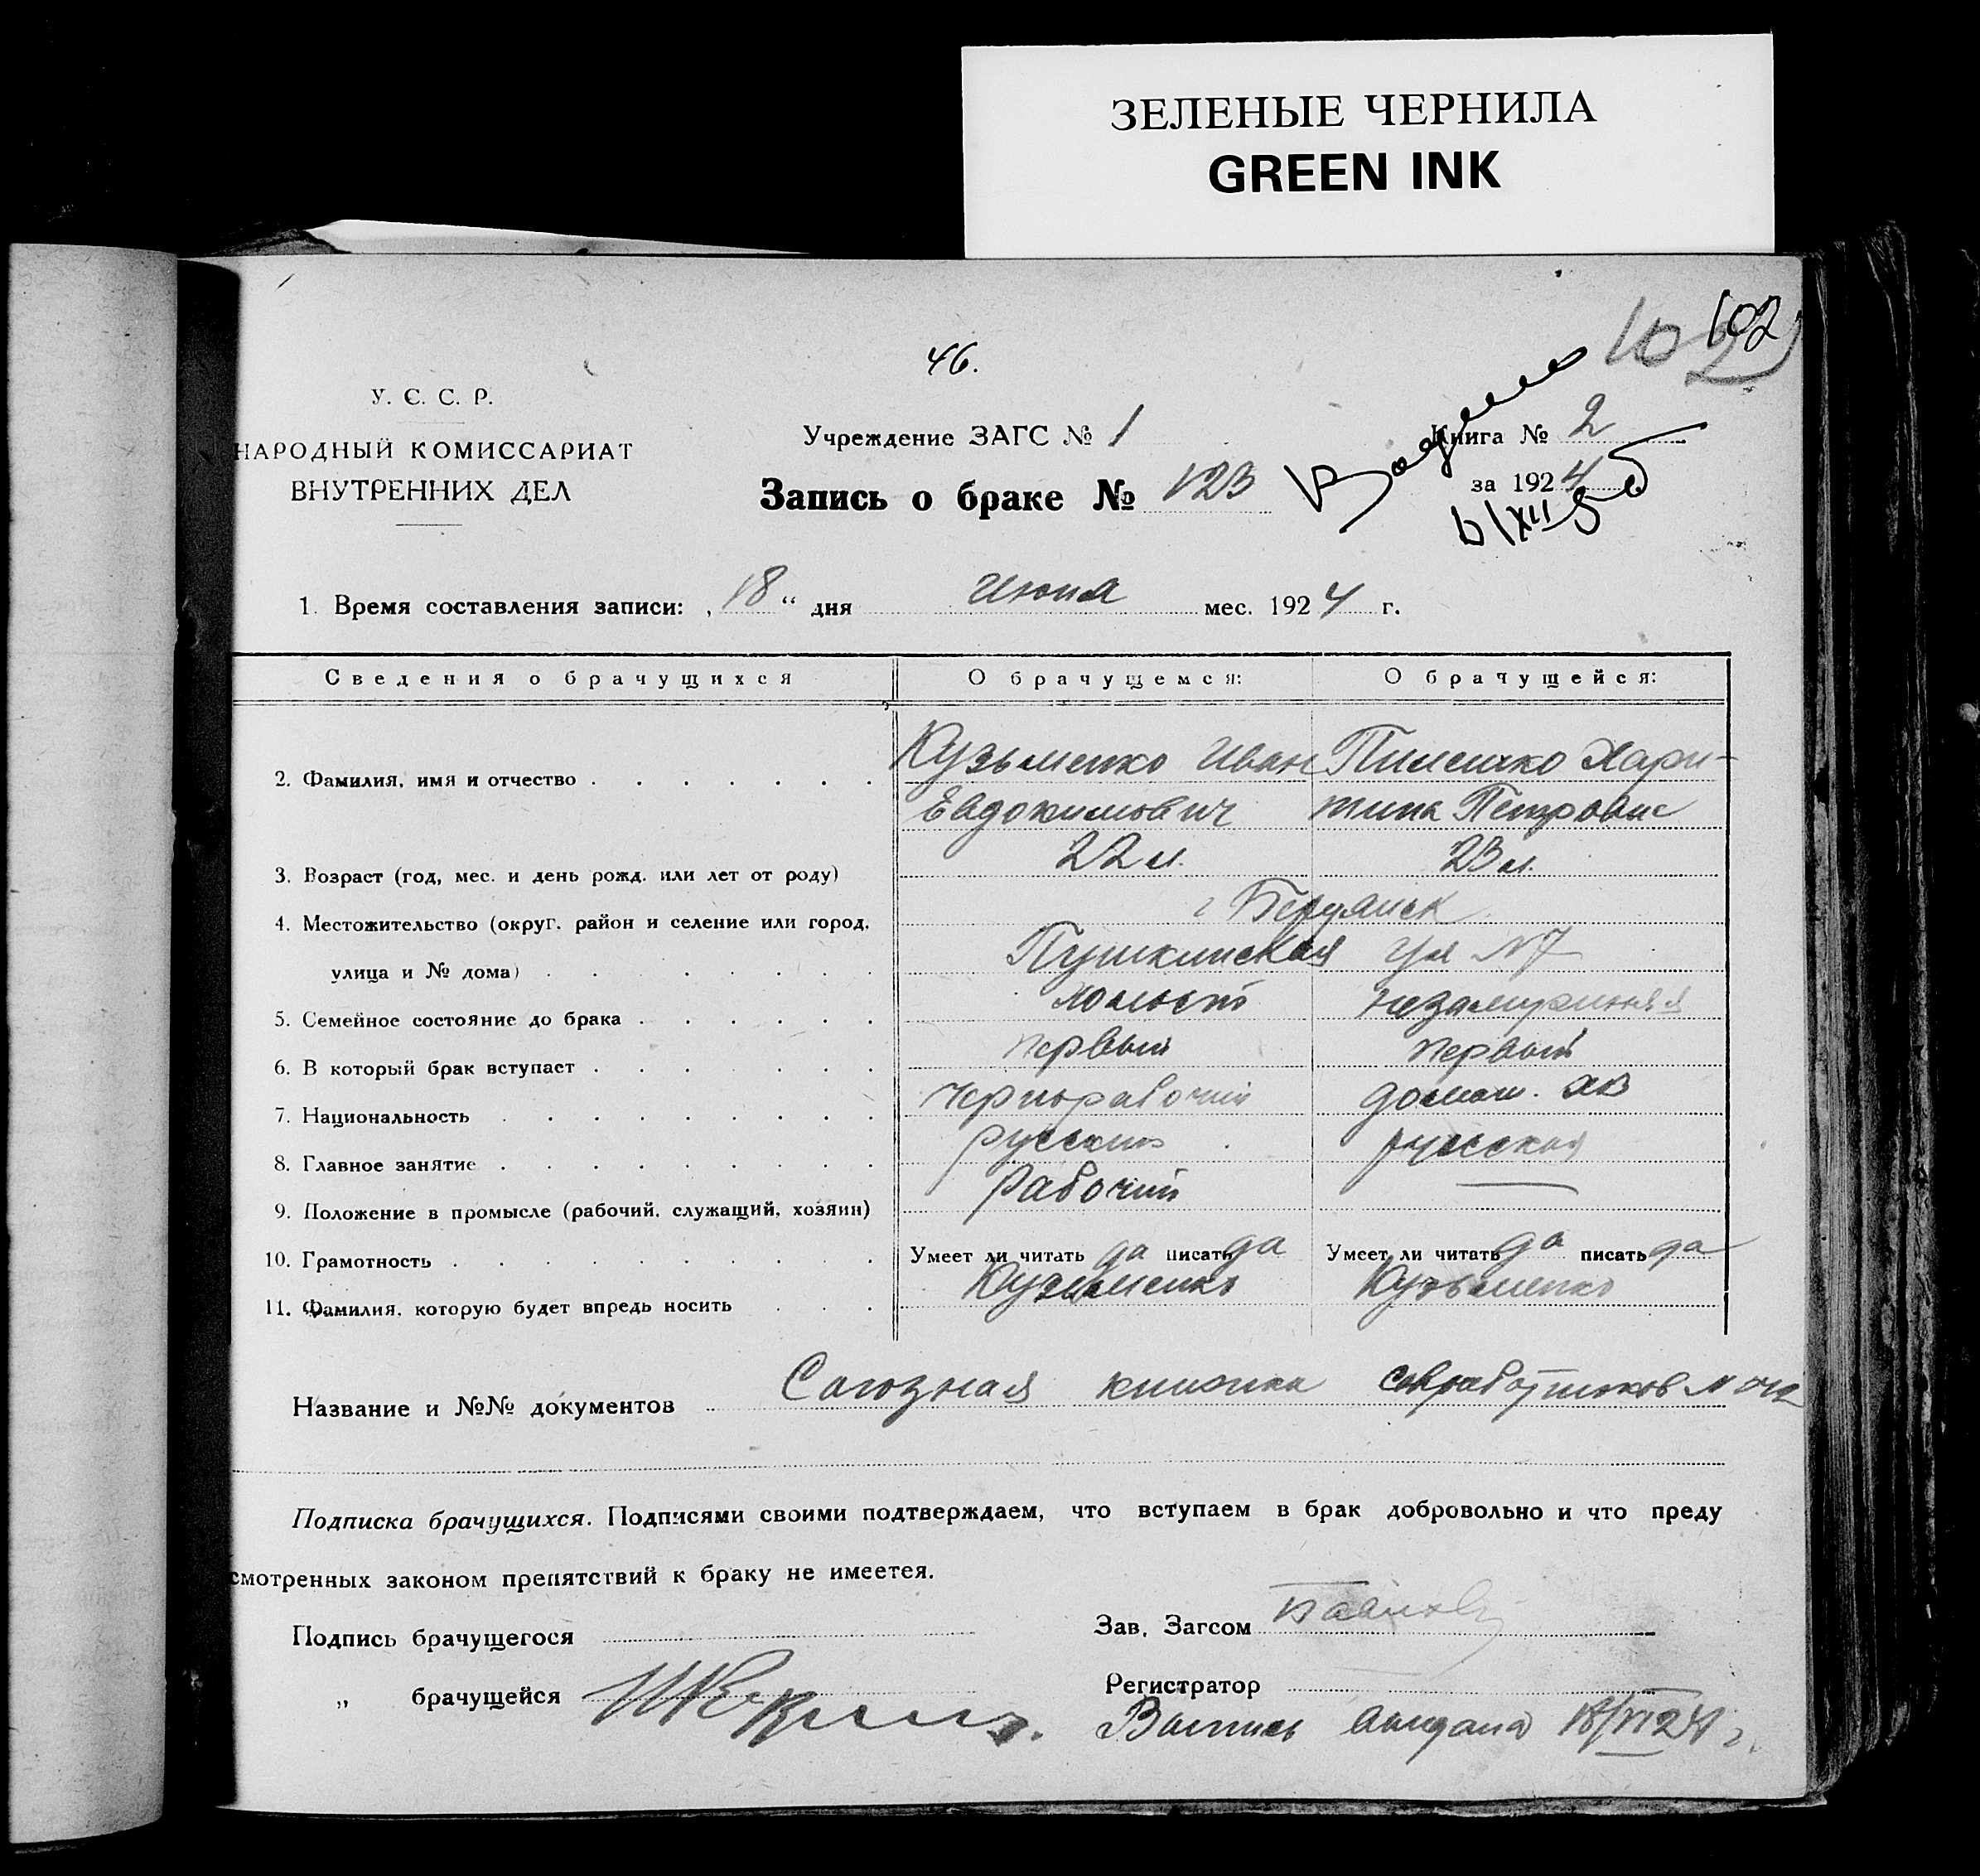 ЗЕЛЕНЫЕ ЧЕРНИЛА
GREEN INK
102
102
46.
У. С. С. Р.
НАРОДНЫЙ КОМИССАРИАТ
ВНУТРЕННИХ ДЕЛ
Учреждение ЗАГС № 1
Книга № 2
за 1924
Запись о браке № 123
1. Время составления записи: „18“ дня Июня мес. 1924 г.
Сведения о брачущихся О брачущемся: О брачущейся:
2. Фамилия, имя и отчество Кузьменко Иван Пилешко Хари-
Евдокимович тина Петровна
3. Возраст (год, мес. и день рожд. или лет от роду) 22 л. 23 л.
4. Местожительство (округ, район и селение или город, г Бердянск
улица и № дома) Пушкинская ул №7
5. Семейное состояние до брака холост незамужняя
6. В который брак вступает первый первый
7. Национальность Чернорабочий домаш. хоз
8. Главное занятие русский русская
9. Положение в промысле (рабочий, служащий, хозяин) Рабочий —
10. Грамотность Умеет ли читать да писать да Умеет ли читать да писать да
11. Фамилия, которую будет впредь носить Кузьменко Кузьменко
Название и №№ документов Союзная книжка
Подписка брачущихся. Подписями своими подтверждаем, что вступаем в брак добровольно и что преду
смотренных законом препятствий к браку не имеется.
Подпись брачущегося
Зав. Загсом
„ брачущейся
Регистратор
Выпись выдана 18/VI 24 г.